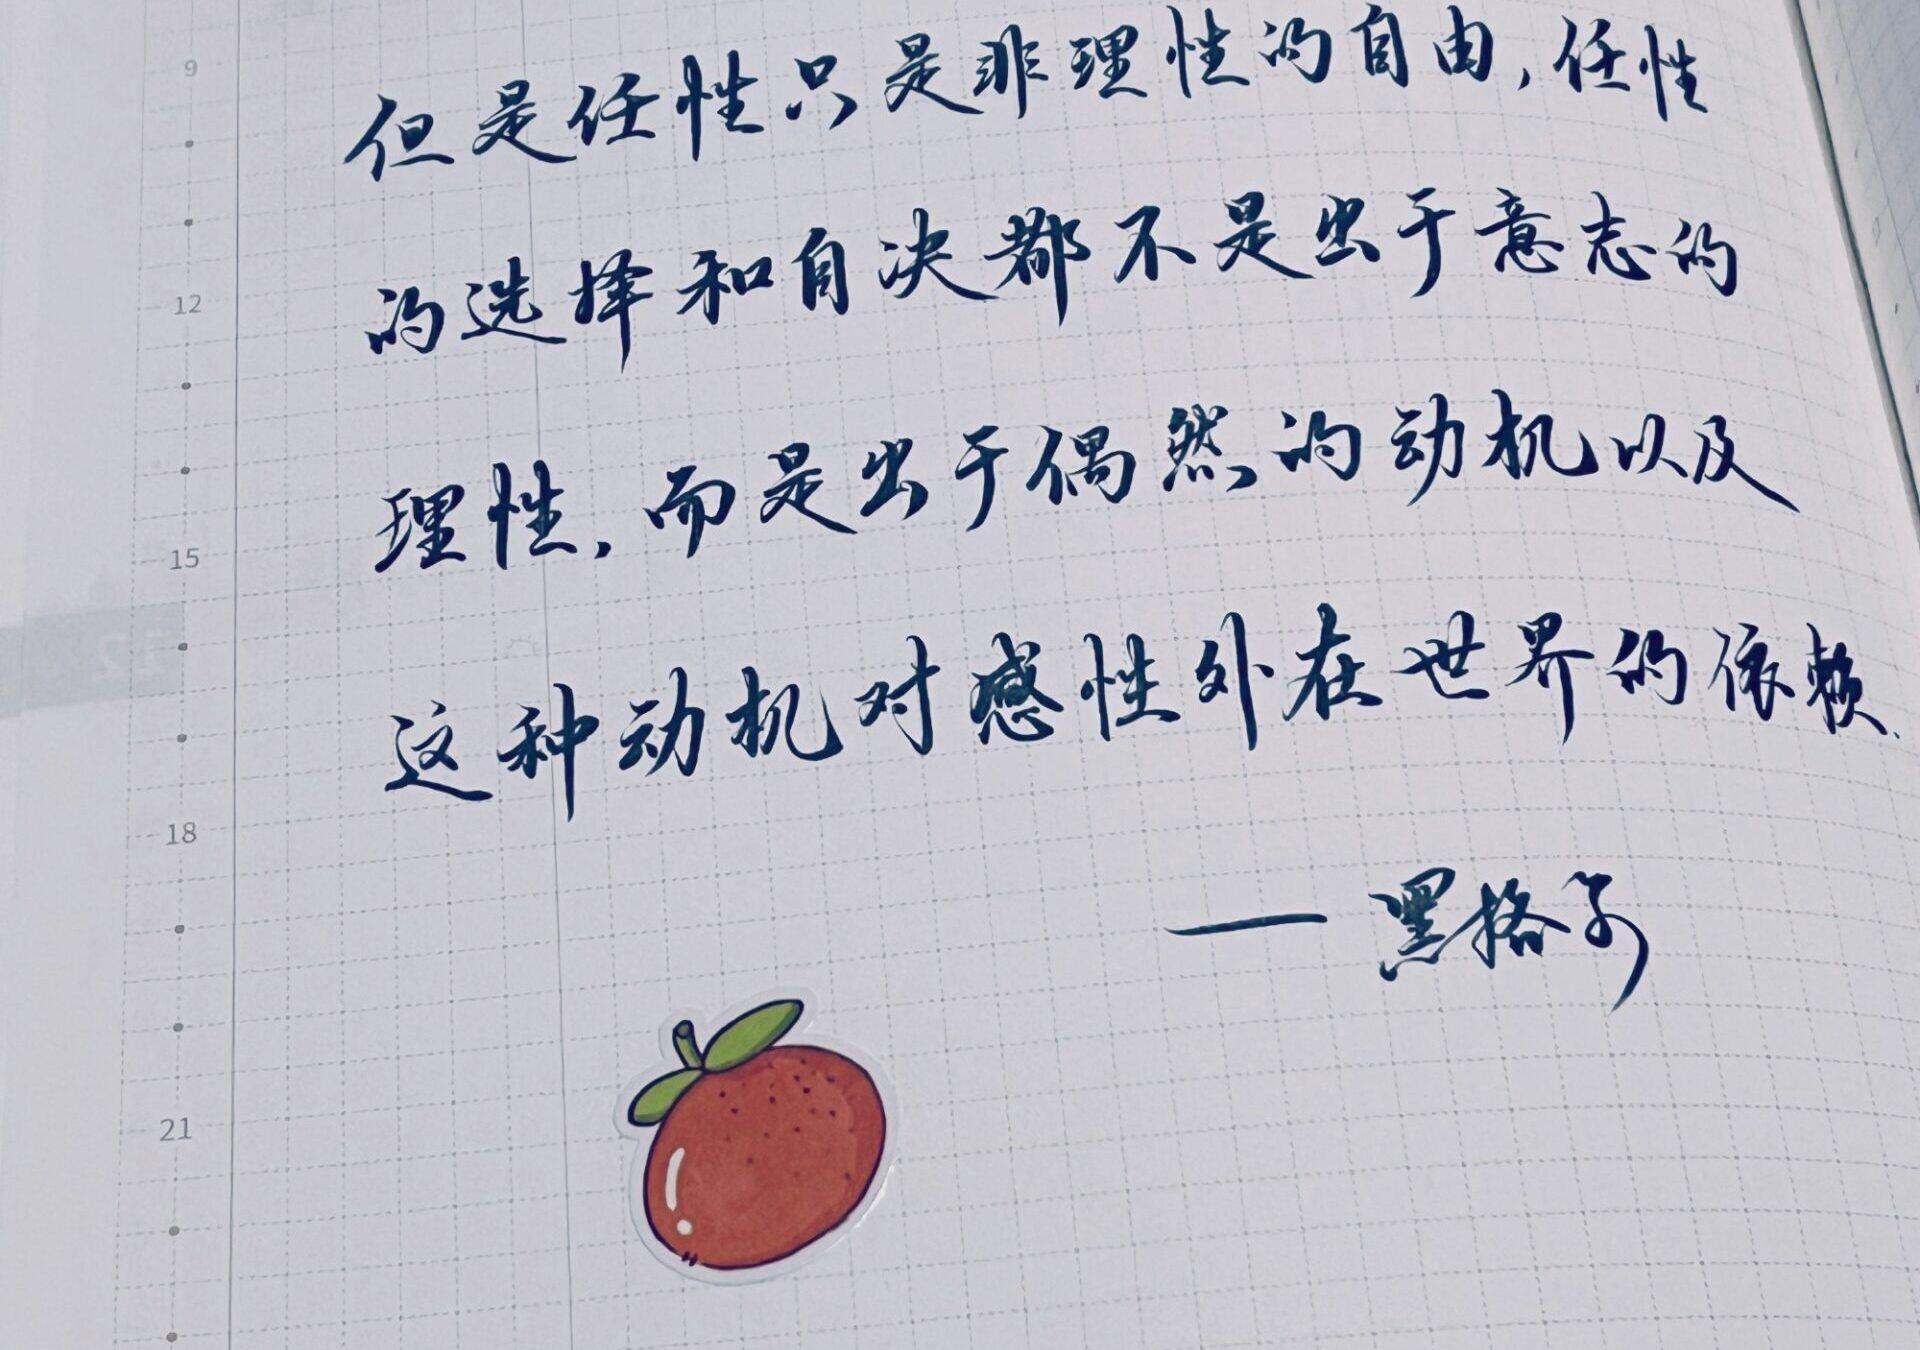 9
但是任性只是非理性的自由，任性
的选择和自决都不是出于意志的
12
理性，而是出于偶然的动机以及
15
这种动机对感性外在世界的依赖、
18
—黑格尔
21